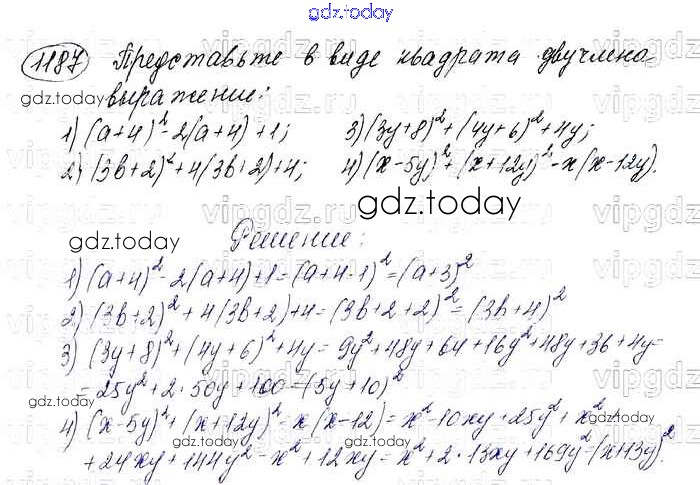 gdz.today
1187 Представьте в виде квадрата двучлена
выражение:
gdz.today
1) (a+4)² - 2(a+4) + 1; 3) (3y+8)² + (4y+6)² + 4y;
2) (3b+2)² + 4(3b+2) + 4; 4) (x-5y)² + (x+12y)² - x(x-12y).
gdz.today
gdz.today
Решение:
1) (a+4)² - 2(a+4) + 1 = (a+4-1)² = (a+3)²
2) (3b+2)² + 4(3b+2) + 4 = (3b+2+2)² = (3b+4)²
3) (3y+8)² + (4y+6)² + 4y = 9y² + 48y + 64 + 16y² + 48y + 36 + 4y =
= 25y² + 2·50y + 100 = (5y+10)²
gdz.today
gdz.today
4) (x-5y)² + (x+12y)² - x(x-12) = x² - 10xy + 25y² + x² +
+ 24xy + 144y² - x² + 12xy = x² + 2·13xy + 169y² = (x+13y)².
vipgdz.ru